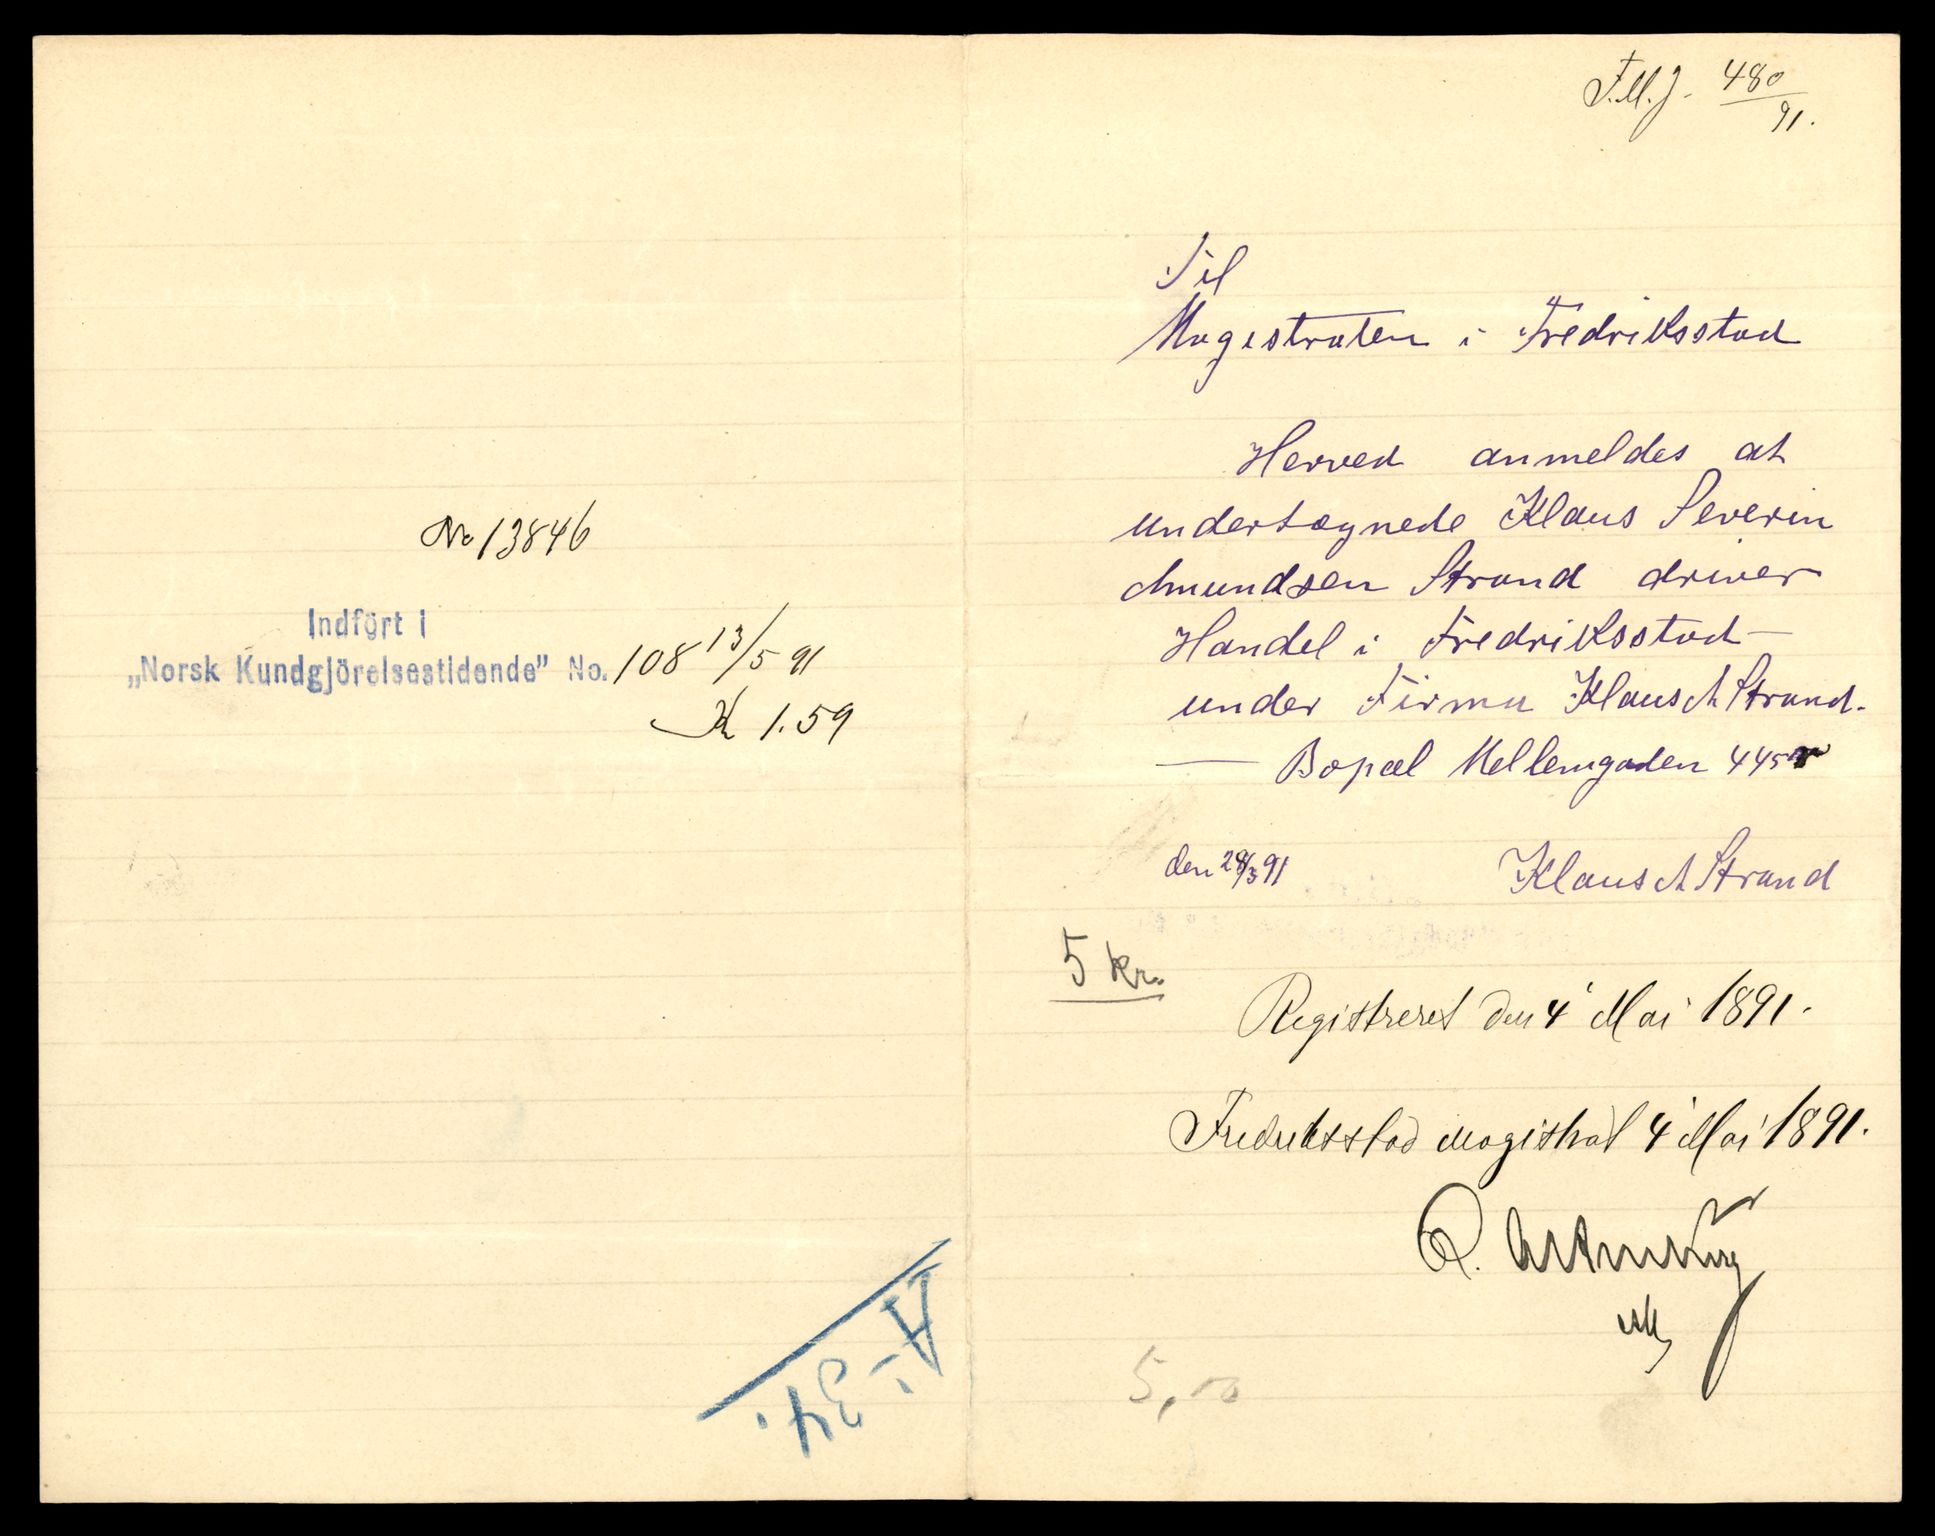 No 13846
Indfört i
„Norsk Kundgjörelsestidende” No. 108 13/5 91
K 1.59
A-34.
F.M.J. 480/91.
Til
Magistraten i Fredriksstad
Herved anmeldes at
undertegnede Klaus Severin
Amundsen Strand driver
Handel i Fredriksstad —
under Firma Klaus A Strand.
— Bopæl Mellemgaden 445
den 28/3 91 Klaus A Strand
5 kr.
Registreret den 4 Mai 1891.
Fredriksstad Magistrat 4 Mai 1891.
5,00